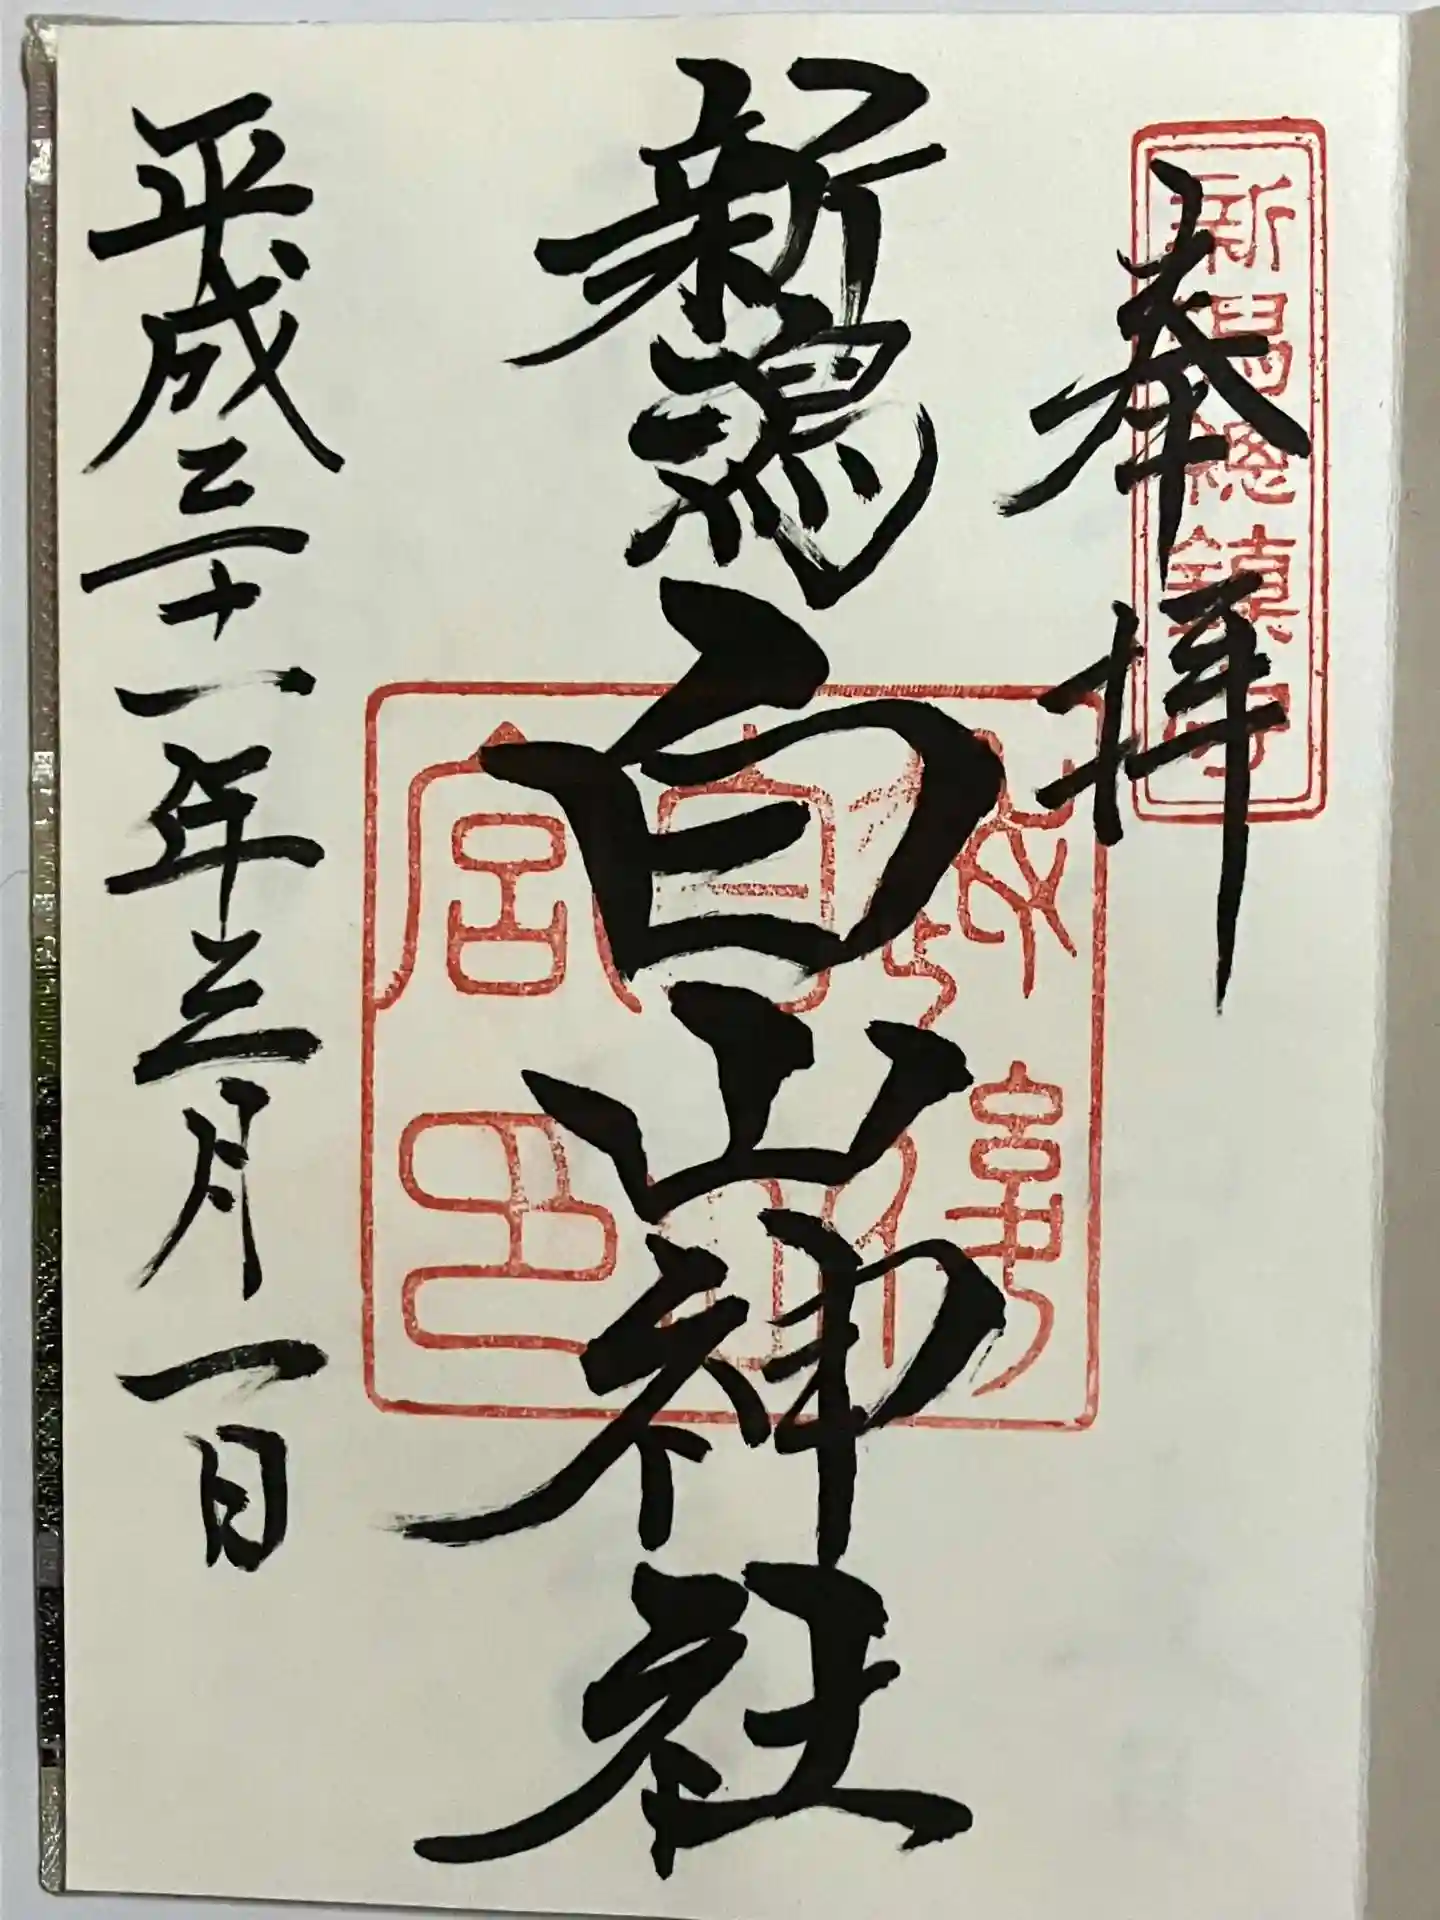 新潟總鎮守
奉拝
新潟白山神社
白山
宮印
平成三十一年三月一日